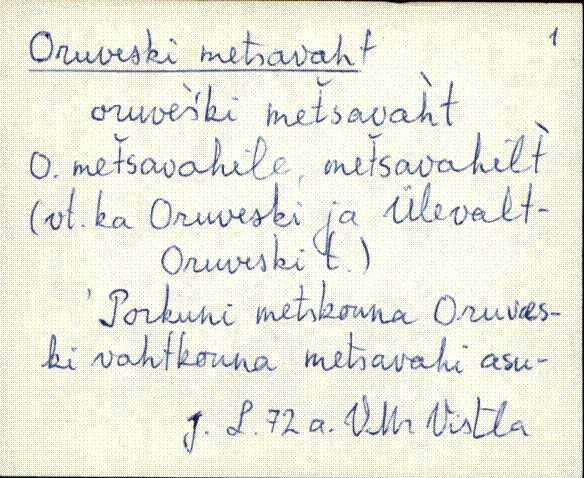 1
Oruveski metsavaht
oruveš̀ki met̆savah̀t
O. met̆savahile, met̆savahilt̀
(vt. ka Oruveski ja Ülevalt-
Oruveski t.)
'Porkuni metskonna Oruves-
ki vahtkonna metsavahi asu-
J. L. 72 a. VMr Vistla